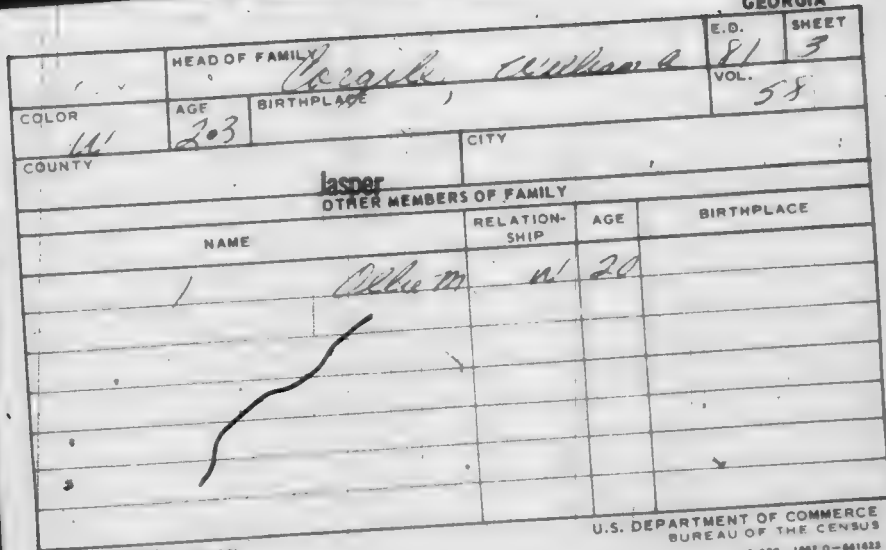 GEORGIA
HEAD OF FAMILY Cargile William A
E.D. 81
SHEET 3
VOL. 58
COLOR W
AGE 23
BIRTHPLACE
COUNTY Jasper
CITY
OTHER MEMBERS OF FAMILY
NAME RELATION-SHIP AGE BIRTHPLACE
/ Ollie M W 20
U.S. DEPARTMENT OF COMMERCE
BUREAU OF THE CENSUS